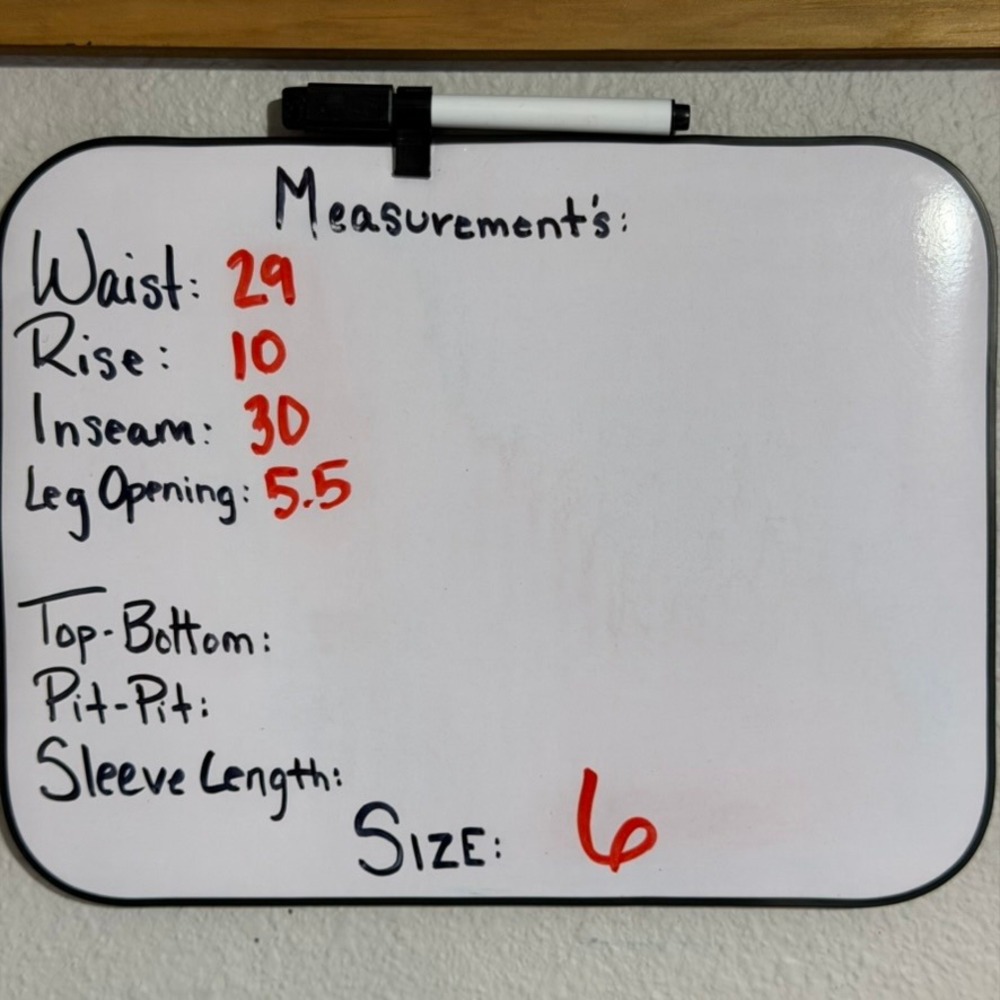 Measurement's:
Waist: 29
Rise: 10
Inseam: 30
Leg Opening: 5.5
Top-Bottom:
Pit-Pit:
Sleeve Length:
SIZE: 6